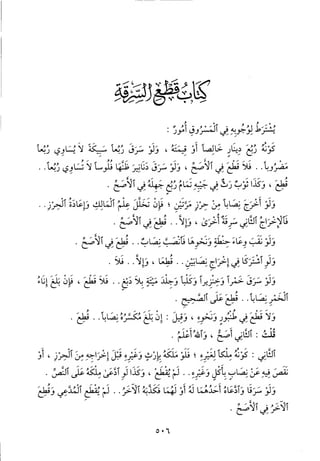 كِتَابُ قَطْعِ السَّرِقَةِ
يُشْتَرَطُ لِوُجُوبِهِ فِي الْمَسْرُوقِ أُمُورٌ :
كَوْنُهُ رُبُعَ دِينَارٍ خَالِصاً أَوْ قِيمَتَهُ ، وَلَوْ سَرَقَ رُبُعاً سَبِيكَةً لاَ يُسَاوِي رُبُعاً
مَضْرُوباً.. فَلاَ قَطْعَ فِي الأَصَحِّ ، وَلَوْ سَرَقَ دَنَانِيرَ ظَنَّهَا فُلُوساً لاَ تُسَاوِي رُبُعاً..
قُطِعَ ، وَكَذَا ثَوْبٌ رَثٌّ فِي جَيْبِهِ تَمَامُ رُبُعٍ جَهِلَهُ فِي الأَصَحِّ .
وَلَوْ أَخْرَجَ نِصَاباً مِنْ حِرْزٍ مَرَّتَيْنِ ، فَإِنْ تَخَلَّلَ عِلْمُ الْمَالِكِ وَإِعَادَةُ الْحِرْزِ..
فَالإِخْرَاجُ الثَّانِي سَرِقَةٌ أُخْرَى ، وَإِلاَّ.. قُطِعَ فِي الأَصَحِّ .
وَلَوْ نَقَبَ وِعَاءَ حِنْطَةٍ وَنَحْوِهَا فَانْصَبَّ نِصَابٌ.. قُطِعَ فِي الأَصَحِّ .
وَلَوِ اشْتَرَكَا فِي إِخْرَاجِ نِصَابَيْنِ.. قُطِعَا ، وَإِلاَّ.. فَلاَ .
وَلَوْ سَرَقَ خَمْراً وَخِنْزِيراً وَكَلْباً وَجِلْدَ مَيْتَةٍ بِلاَ دَبْغٍ.. فَلاَ قَطْعَ ، فَإِنْ بَلَغَ إِنَاءُ
الْخَمْرِ نِصَاباً.. قُطِعَ عَلَى الصَّحِيحِ .
وَلاَ قَطْعَ فِي طُنْبُورٍ وَنَحْوِهِ ، وَقِيلَ : إِنْ بَلَغَ مُكَسَّرُهُ نِصَاباً.. قُطِعَ .
قُلْتُ : الثَّانِي أَصَحُّ ، وَاللهُ أَعْلَمُ .
الثَّانِي : كَوْنُهُ مِلْكاً لِغَيْرِهِ ؛ فَلَوْ مَلَكَهُ بِإِرْثٍ وَغَيْرِهِ قَبْلَ إِخْرَاجِهِ مِنَ الْحِرْزِ ، أَوْ
نَقَصَ فِيهِ عَنْ نِصَابٍ بِأَكْلٍ وَغَيْرِهِ.. لَمْ يُقْطَعْ ، وَكَذَا لَوِ ادَّعَى مِلْكَهُ عَلَى النَّصِّ .
وَلَوْ سَرَقَا وَادَّعَاهُ أَحَدُهُمَا لَهُ أَوْ لَهُمَا فَكَذَّبَهُ الآخَرُ.. لَمْ يُقْطَعِ الْمُدَّعِي وَقُطِعَ
الآخَرُ فِي الأَصَحِّ .
٥٠٦